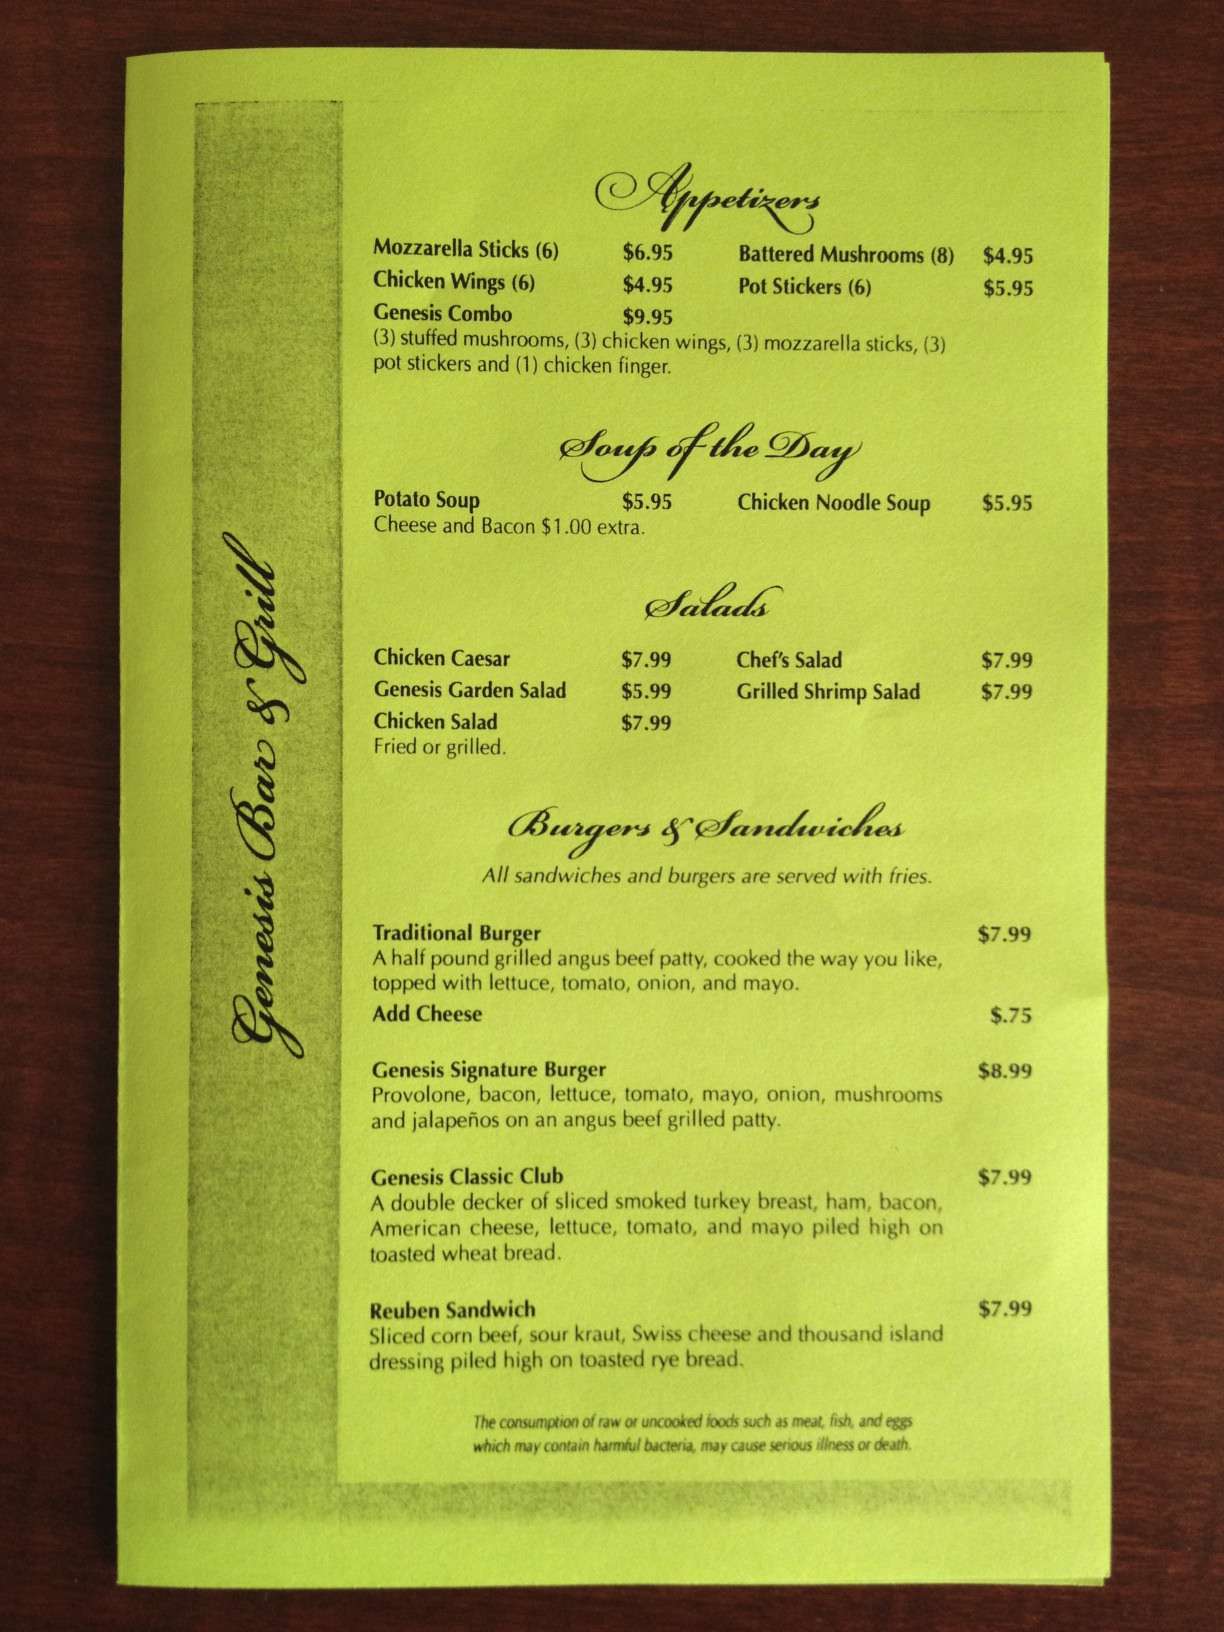 Genesis Bar & Grill
Appetizers
Mozzarella Sticks (6) $6.95 Battered Mushrooms (8) $4.95
Chicken Wings (6) $4.95 Pot Stickers (6) $5.95
Genesis Combo $9.95
(3) stuffed mushrooms, (3) chicken wings, (3) mozzarella sticks, (3)
pot stickers and (1) chicken finger.
Soup of the Day
Potato Soup $5.95 Chicken Noodle Soup $5.95
Cheese and Bacon $1.00 extra.
Salads
Chicken Caesar $7.99 Chef's Salad $7.99
Genesis Garden Salad $5.99 Grilled Shrimp Salad $7.99
Chicken Salad $7.99
Fried or grilled.
Burgers & Sandwiches
All sandwiches and burgers are served with fries.
Traditional Burger $7.99
A half pound grilled angus beef patty, cooked the way you like,
topped with lettuce, tomato, onion, and mayo.
Add Cheese $.75
Genesis Signature Burger $8.99
Provolone, bacon, lettuce, tomato, mayo, onion, mushrooms
and jalapeños on an angus beef grilled patty.
Genesis Classic Club $7.99
A double decker of sliced smoked turkey breast, ham, bacon,
American cheese, lettuce, tomato, and mayo piled high on
toasted wheat bread.
Reuben Sandwich $7.99
Sliced corn beef, sour kraut, Swiss cheese and thousand island
dressing piled high on toasted rye bread.
The consumption of raw or uncooked foods such as meat, fish, and eggs
which may contain harmful bacteria, may cause serious illness or death.